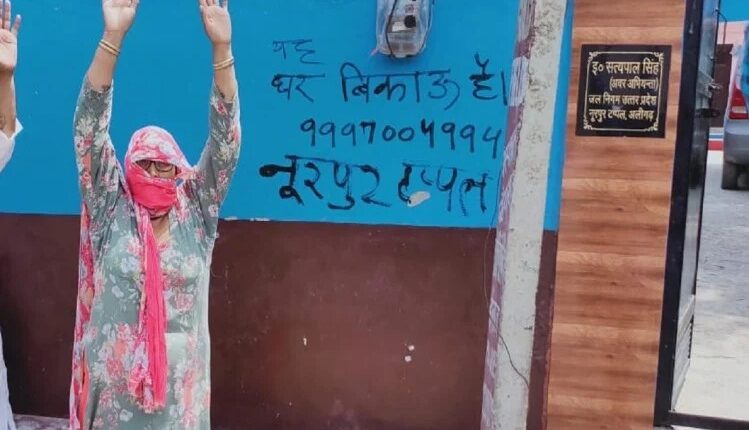 यह
घर बिकाऊ है।
9997004994
नूरपुर टप्पल
इ० सत्यपाल सिंह
(अवर अभियन्ता)
जल निगम उत्तर प्रदेश
नूरपुर टप्पल, अलीगढ़